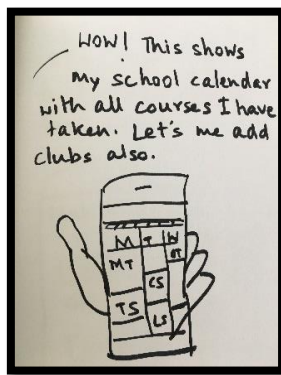 WOW! This shows
my school calendar
with all courses I have
taken. Let's me add
clubs also.
M T W
MT
CS
TS
LS